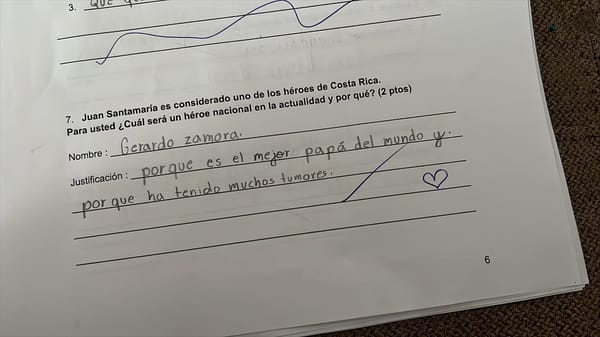 3. QUE
7. Juan Santamaría es considerado uno de los héroes de Costa Rica.
Para usted ¿Cuál será un héroe nacional en la actualidad y por qué? (2 ptos)
Nombre : Gerardo zamora.
Justificación : porque es el mejor papá del mundo y.
porque ha tenido muchos tumores.
6